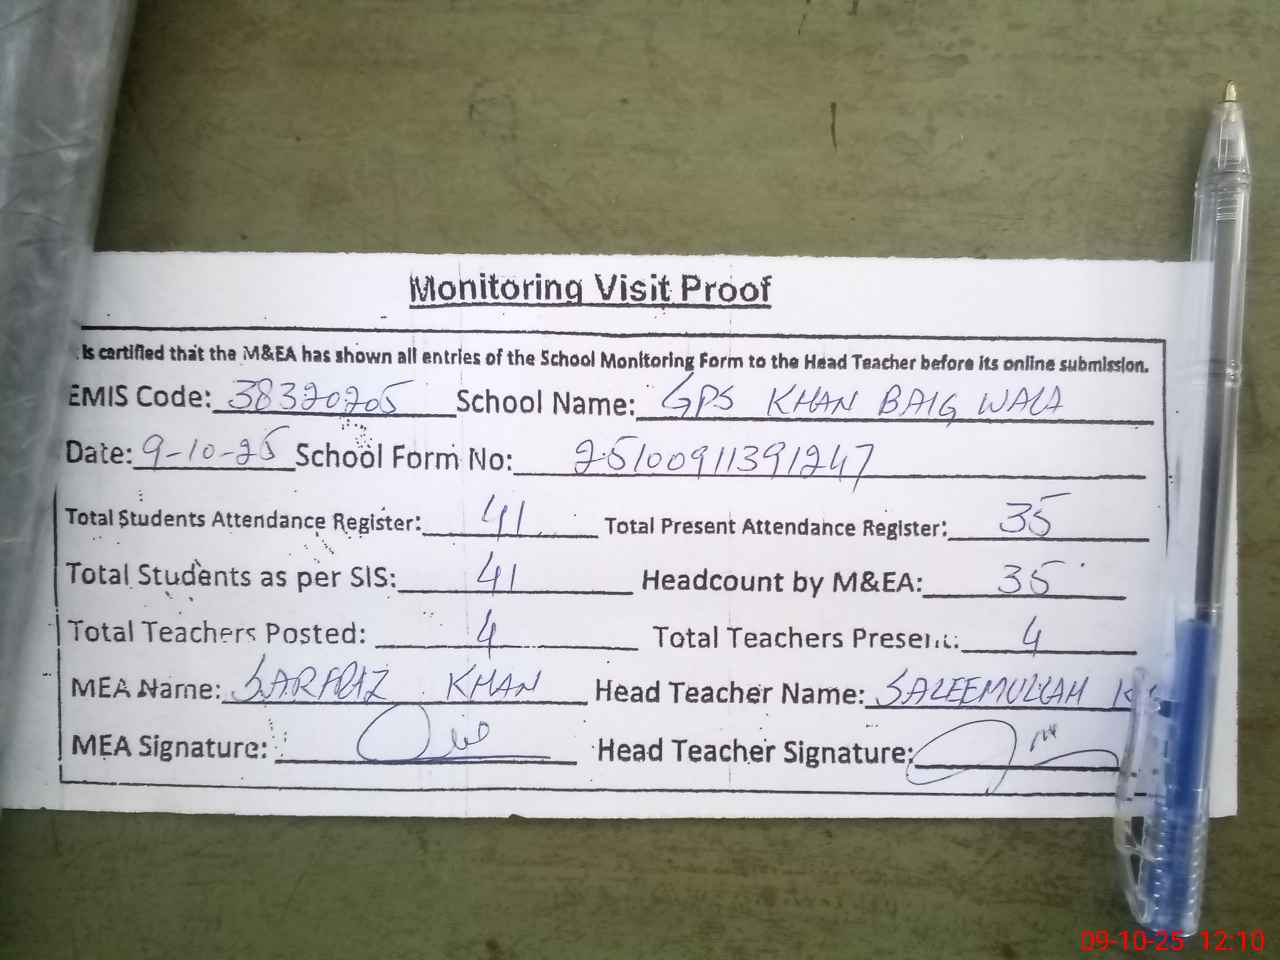 Monitoring Visit Proof
is certified that the M&EA has shown all entries of the School Monitoring Form to the Head Teacher before its online submission.
EMIS Code: 38320205 School Name: GPS KHAN BAIG WALA
Date: 9-10-25 School Form No: 25100911391247
Total Students Attendance Register: 41 Total Present Attendance Register: 35
Total Students as per SIS: 41 Headcount by M&EA: 35
Total Teachers Posted: 4 Total Teachers Present: 4
MEA Name: SARFRAZ KHAN Head Teacher Name: SALEEMULLAH
MEA Signature: Head Teacher Signature:
09-10-25 12:10